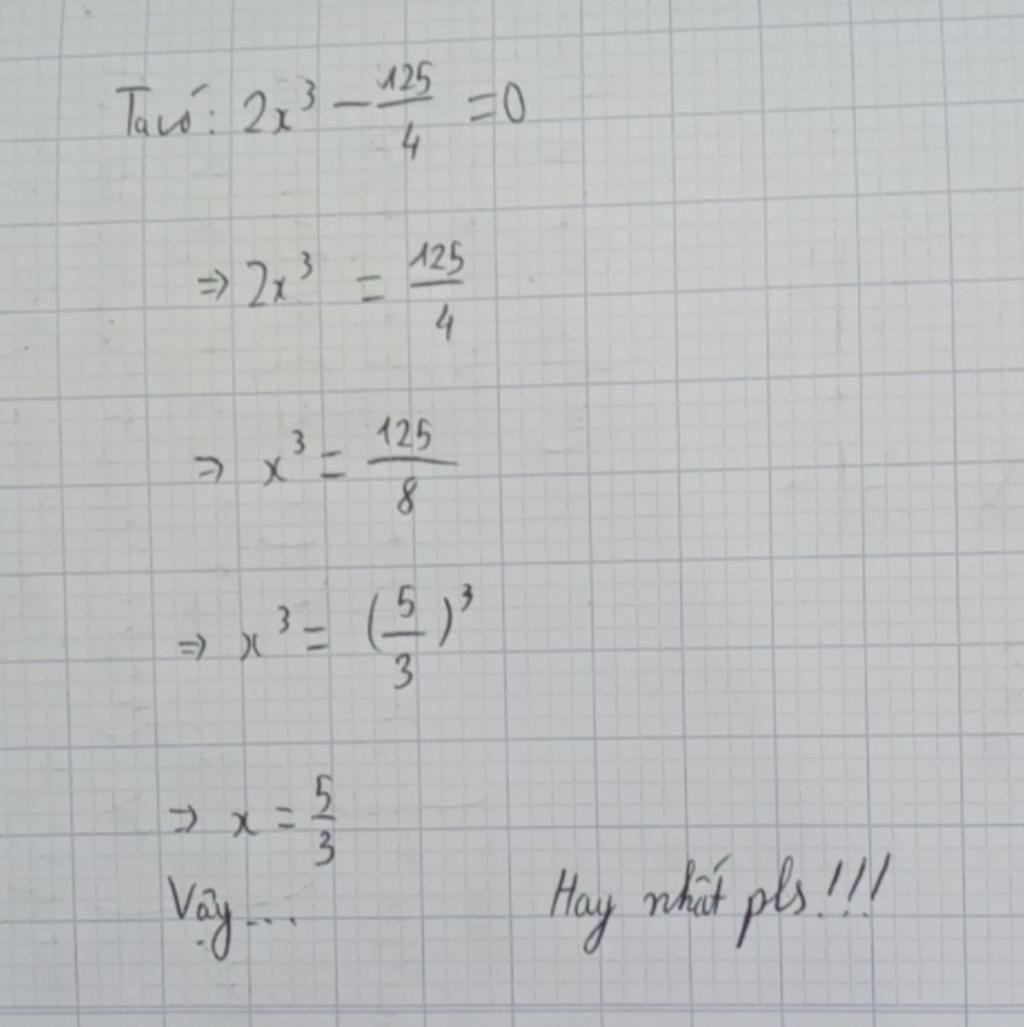 Ta có: 2x³ - 125/4 = 0
⇒ 2x³ = 125/4
⇒ x³ = 125/8
⇒ x³ = (5/3)³
⇒ x = 5/3
Vậy...
Hay nhất pls!!!